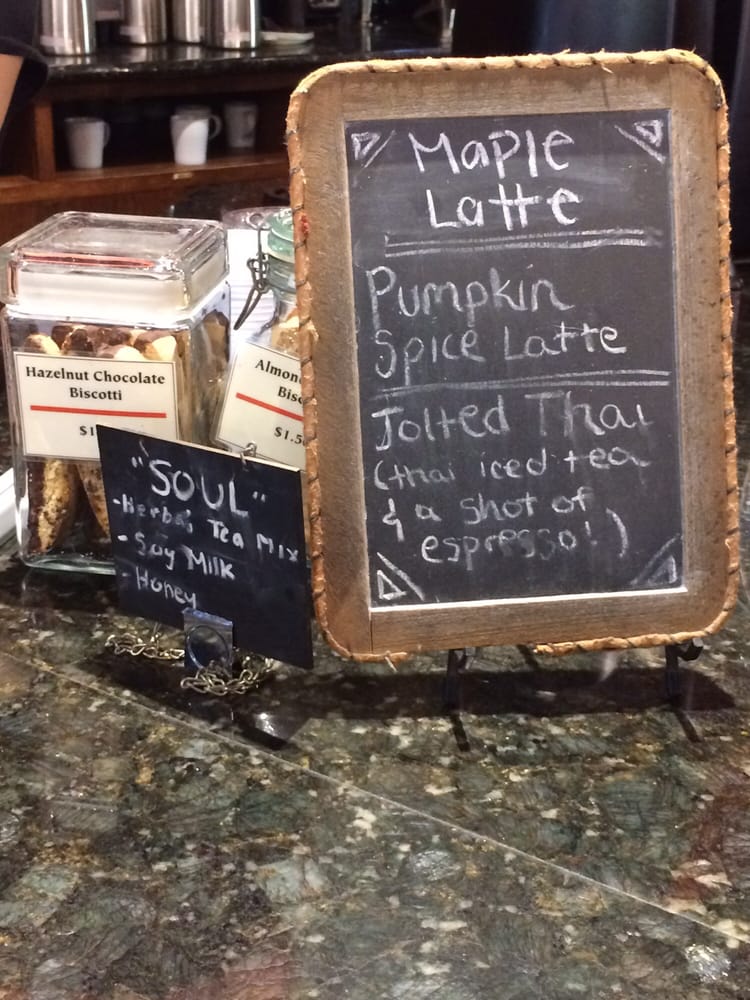 Maple
Latte
Pumpkin
Spice Latte
Jolted Thai
(thai iced tea
& a shot of
espresso!)
Hazelnut Chocolate
Biscotti
$1
Almon
Bisc
$1.5
"SOUL"
-Herbal Tea Mix
-Soy Milk
-Honey